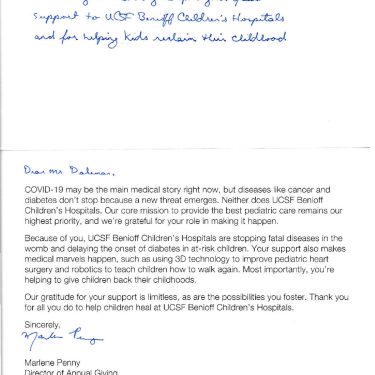 support to UCSF Benioff Children's Hospitals
and for helping kids reclaim their childhood
Dear Mr.
COVID-19 may be the main medical story right now, but diseases like cancer and
diabetes don't stop because a new threat emerges. Neither does UCSF Benioff
Children's Hospitals. Our core mission to provide the best pediatric care remains our
highest priority, and we're grateful for your role in making it happen.
Because of you, UCSF Benioff Children's Hospitals are stopping fatal diseases in the
womb and delaying the onset of diabetes in at-risk children. Your support also makes
medical marvels happen, such as using 3D technology to improve pediatric heart
surgery and robotics to teach children how to walk again. Most importantly, you're
helping to give children back their childhoods.
Our gratitude for your support is limitless, as are the possibilities you foster. Thank you
for all you do to help children heal at UCSF Benioff Children's Hospitals.
Sincerely,
Marlene Penny
Marlene Penny
Director of Annual Giving